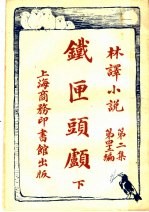 林譯小說
第二集
第四編
鐵匣頭顱
下
上海商務印書館出版